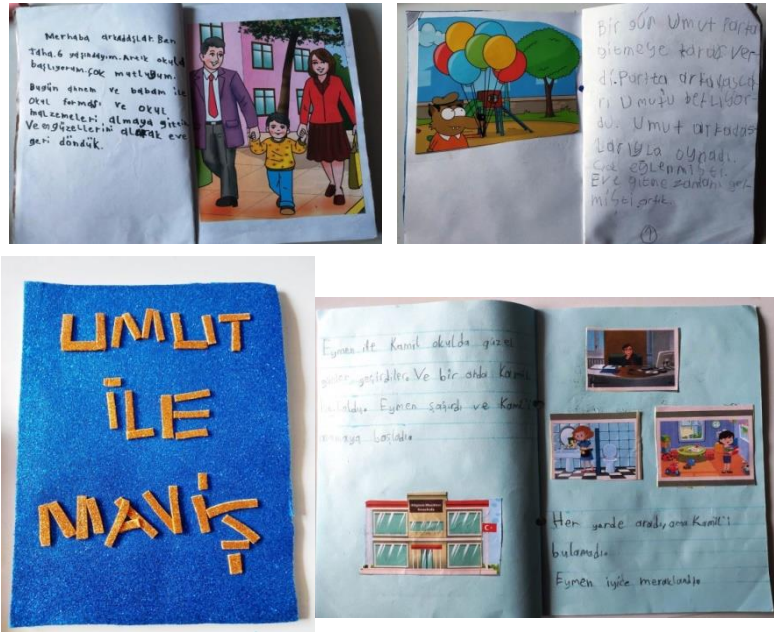 Merhaba arkadaşlar. Ben
Taha. 6 yaşındayım. Artık okula
başlıyorum. Çok mutluyum.
Bugün annem ve babam ile
okul forması ve okul
malzemeleri almaya gittik
Ve en güzellerini alarak eve
geri döndük.
Bir gün Umut Parka
gitmeye karar ver-
di. Parkta arkadaşla
rı Umut'u bekliyor-
du. Umut arkadaş
larıyla oynadı.
Çok eğlenmişti.
Eve gitme zamanı gel-
mişti artık.
UMUT
İLE
MAVİŞ
Eymen ile Kamil okulda güzel
günler geçirdiler. Ve bir anda
Eymen şaşırdı ve Kamil'i
aramaya başladı.
Her yerde aradı, ama Kamil'i
bulamadı.
Eymen iyice meraklandı.